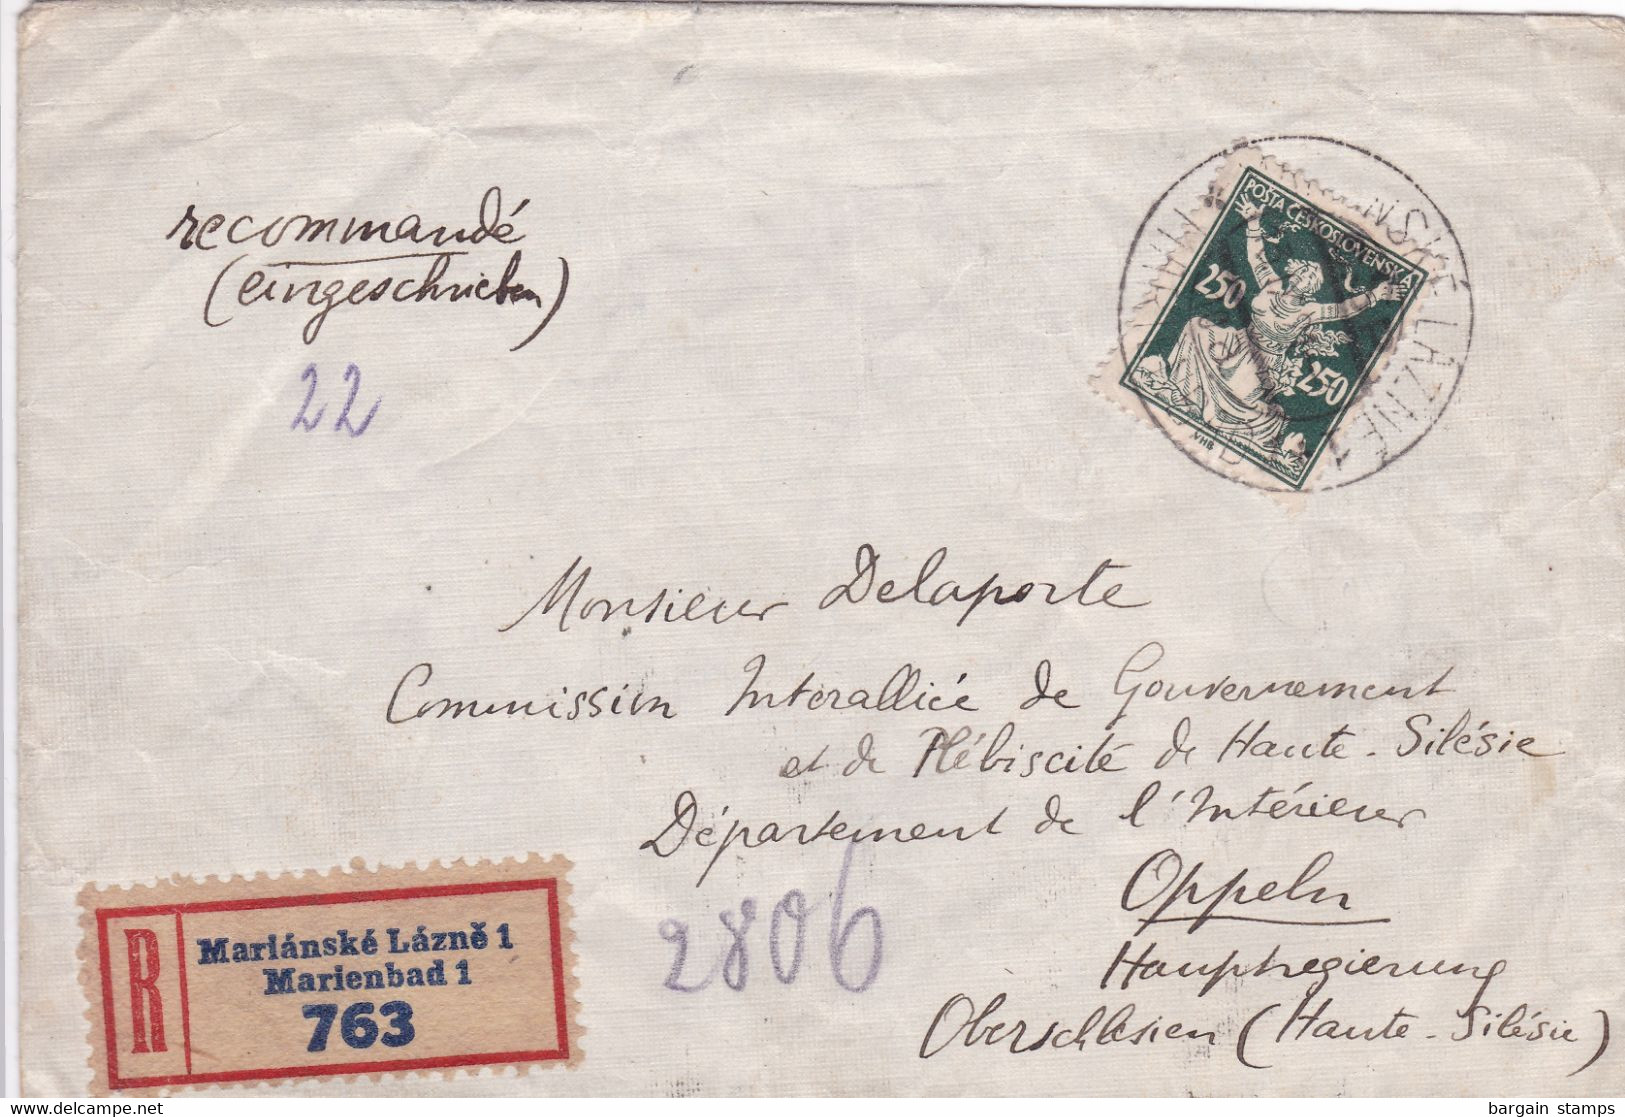 recommandé
(eingeschrieben)
22
POŠTA ČESKOSLOVENSKÁ
250
250
VHB
Monsieur Delaporte
Commission Interalliée de Gouvernement
et de Plébiscite de Haute-Silésie
Département de l'Intérieur
Oppeln
Hauptregierung
Oberschlesien (Haute-Silésie)
2806
R
Mariánské Lázně 1
Marienbad 1
763
bargain stamps